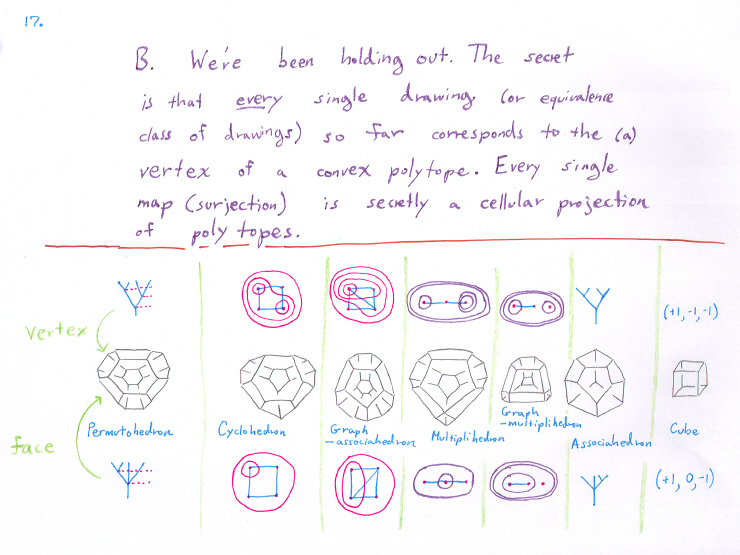 17.
B. We've been holding out. The secret
is that every single drawing (or equivalence
class of drawings) so far corresponds to the (a)
vertex of a convex polytope. Every single
map (surjection) is secretly a cellular projection
of polytopes.
(+1, -1, -1)
vertex
Permutohedron
Cyclohedron
Graph
-associahedron
Multiplihedron
Graph
-multiplihedron
Associahedron
Cube
face
(+1, 0, -1)